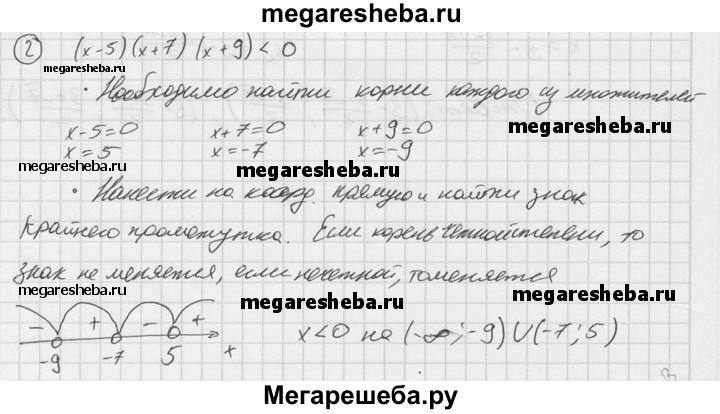 megaresheba.ru
② (x-5)(x+7)(x+9)<0
megaresheba.ru megaresheba.ru
• Необходимо найти корни каждого из множителей
x-5=0 x+7=0 x+9=0 megaresheba.ru
x=5 x=-7 x=-9
megaresheba.ru megaresheba.ru
• Нанести на коорд. прямую и найти знак
крайнего промежутка. Если корень четной степени, то
знак не меняется, если нечетной, то меняется
megaresheba.ru megaresheba.ru megaresheba.ru
- + - +
-9 -7 5 x
x<0 на (-∞;-9)∪(-7;5)
Мегарешеба.ру